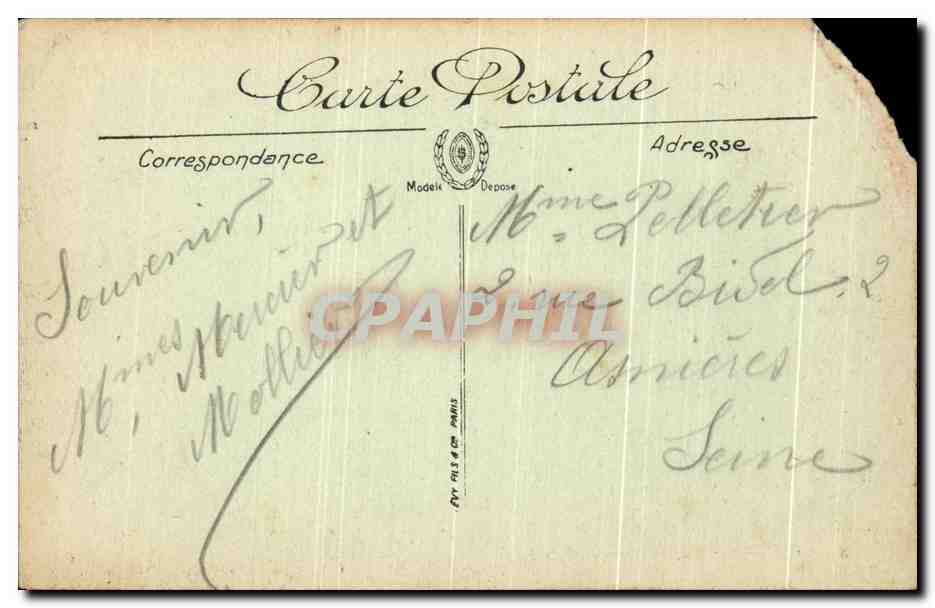 Carte Postale
Correspondance
Adresse
Modèle Déposé
Souvenir,
Mmes Mercier et
Mme Pelletier
2 rue Bidel. 2
Asnières
Seine
EVY FILS & Cie PARIS
CPAPHIL